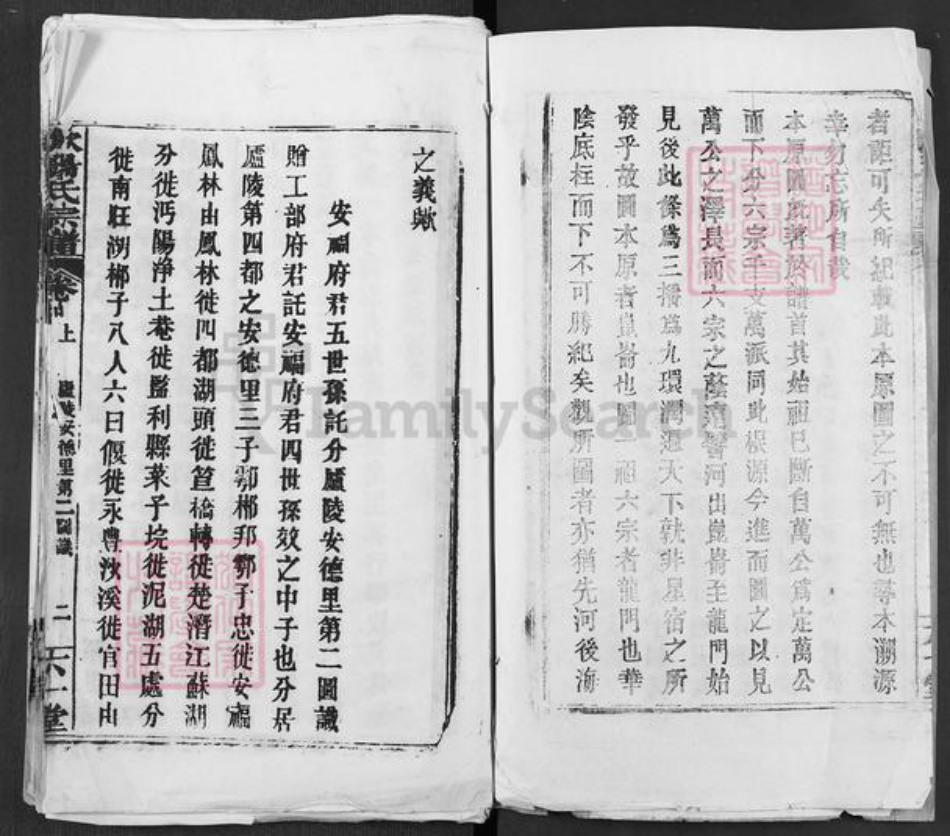 者詎可失所紀載此本原圖之不可無也尋本溯源
幸勿忘所自哉
本原圖既著於譜首其始祖已斷自萬公爲定萬公
而下分六宗千支萬派同此根源今進而圖之以見
萬公之澤長而六宗之蔭遠譬河出崑崙至龍門始
見後此條爲三播爲九環濶遍天下孰非星宿之所
發乎故圖本原者崑崙也圖一祖六宗者龍門也華
陰底柱而下不可勝紀矣觀所圖者亦猶先河後海
之義歟
安福府君五世孫託分廬陵安德里第二圖識
贈工部府君託安福府君四世孫效之中子也分居
廬陵第四都之安德里三子鄂郴邦鄂子忠徙安福
鳳林由鳳林徙四都湖頭徙筻橋轉徙楚潛江蘇湖
分徙沔陽淨土菴徙監利縣菜子垸徙泥湖五處分
徙南旺湖郴子八人六曰偃徙永豐沙溪徙官田由
歐陽氏宗譜
卷首上
廬陵安德里第二圖識
二
六一堂
FamilySearch